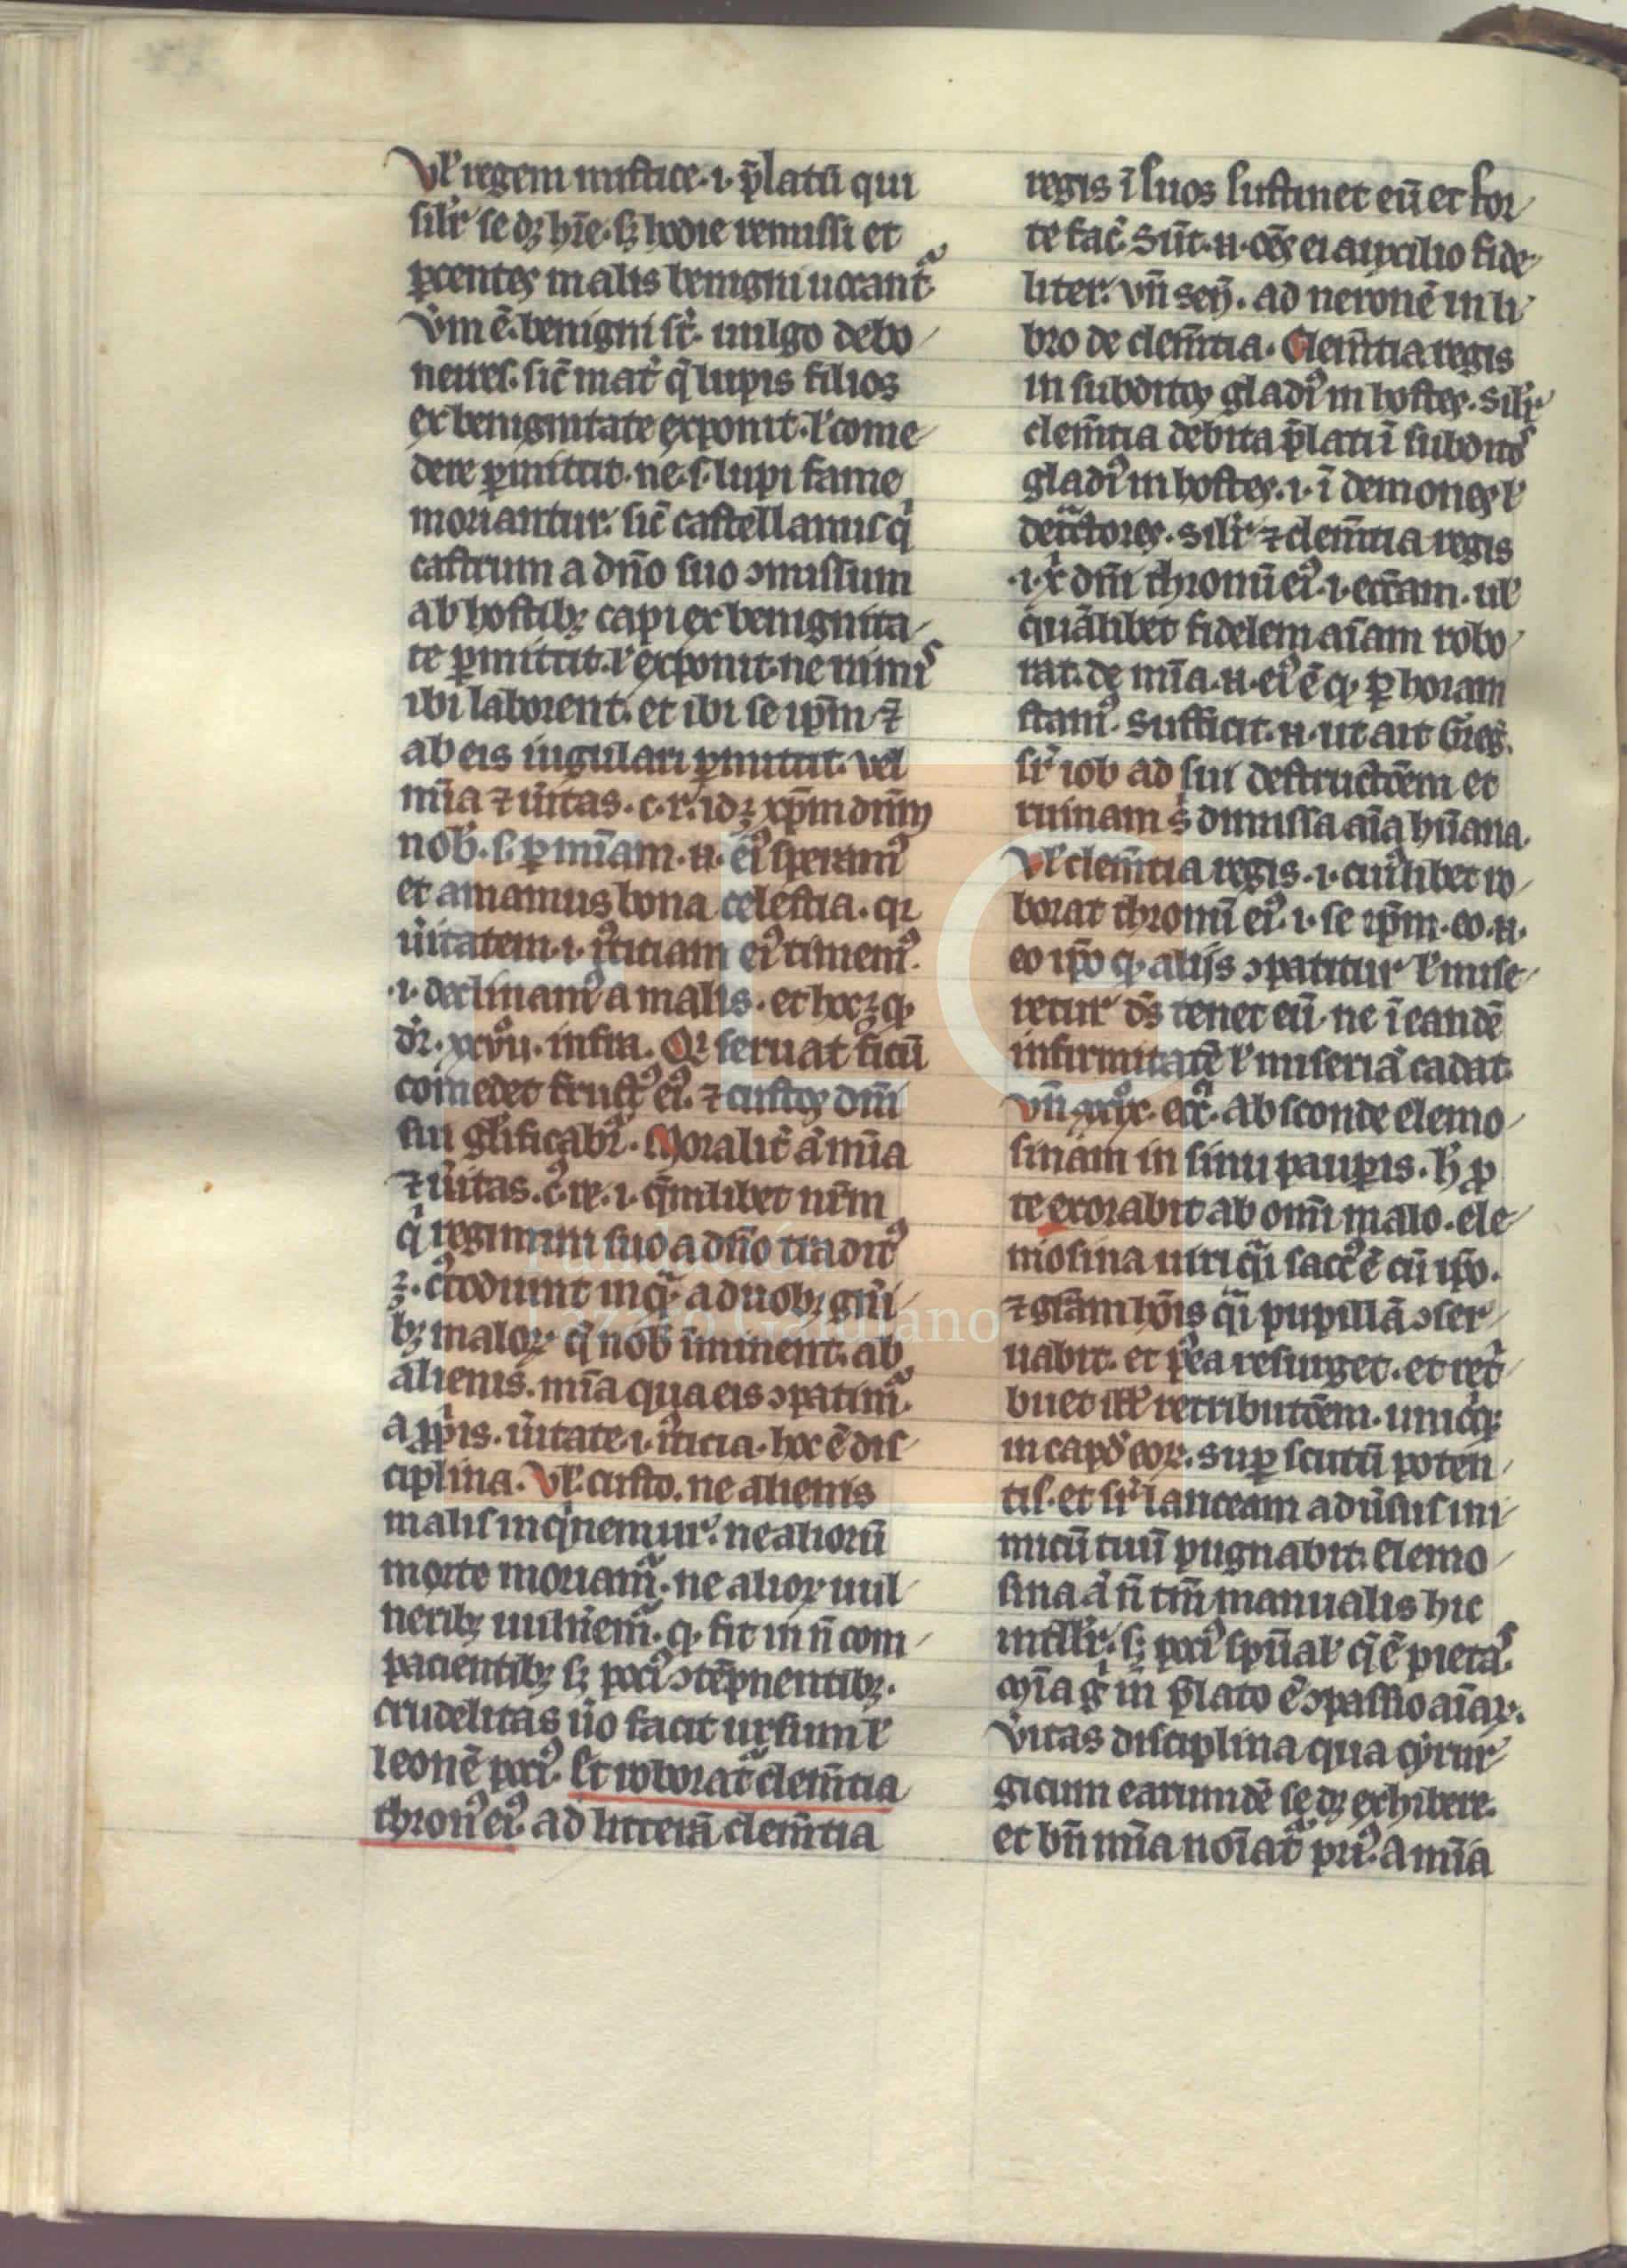 Vl' regem iustice .i. p̄latū qui
sil'r se dꝫ h̄re. sꝫ hodie remissi et
ꝑcentes malis benigni uocant᷑
v̄m ē. benigni st̄. uulgo debo
neires. sic̄ mat̄ q̄ lupis filios
ex benignitate exponit. l' come
dere ꝑmittit. ne .s. lupi fame
moriantur. sic̄ castellanus q̇
castrum a dn̄o suo ꝯmissum
ab hostibꝫ capi ex benignita
te ꝑmittit. l' exponit. ne nimis
ibi laborent. et ibi se ip̄m ⁊
ab eis iugulari ꝑmittit. vel
mīa ⁊ u̇itas .c. r. id ꝫ xp̄m dn̄m
nob̄ .s. ꝑ mīam .n. eiꝰ speramꝰ
et amamus bona celestia. qr
u̇itatem .i. iꝰticiam eiꝰ timemꝰ
.i. declinamꝰ a malis. et hoc ꝫ ꝙ
dr̄. xxvii. infra. Qi seruat ficū
comedet fructꝰ eiꝰ. ⁊ custos dn̄i
sui gl'ificabit᷑. Moralit̄ a̍ mīa
⁊ u̇itas .cꝰ. re. .i. q̄mlibet nr̄m
q̇ regimini suo a dn̄o traditꝰ
ꝫ. cꝰtodiunt inq̄ᵐ a duobꝫ gn̄i
bꝫ maloꝝ q̄ nob̄ iminent. ab
alienis. mīa qua eis ꝯpatim᷑.
a ꝓp̄is. u̇itate .i. iꝰticia. hoc ē dis
ciplina. Vl' custo. ne alienis
malis inq̇nemur. ne aliorū
morte moriam᷑. ne alioꝝ uul
neribꝫ uulnem᷑. ꝙ fit in n̄ com
pacientibꝫ sꝫ pociꝰ ꝯtēpnentibꝫ.
crudelitas u̇o facit ursum l'
leonē pociꝰ. Et roborat᷑ clem̄tia
thronꝰ eiꝰ. ad litterā clem̄tia
regis ī suos sustinet eū et for
tē fac̄. Sūt .n. oēs ei auxilio fide
liter. vn̄ sen̄. ad neronē in li
bro de clem̄tia. Clem̄tia regis
in subditos gladiꝰ in hostes. Sil'r
clem̄tia debita p̄lati ī subditos
gladiꝰ in hostes .i. ī demones l'
det᷑ctores. Sil'r ⁊ clem̄tia regis
.i. xī dn̄i thronū eiꝰ .i. eccl̄am. ul'
quālibet fidelem aīam robo
rat. de mīa .n. eiꝰ ē ꝙ ꝑ horam
stamꝰ. Sufficit .n. ut ait Greḡ.
sr̄ iob ad sui destructōem et
ruinam s̍ dimissa aīa hūana.
Vl' clem̄tia regis .i. cuiꝰlibet ro
borat thronū eiꝰ .i. se ip̄m. eo .n.
eo ip̄o ꝙ alijs ꝯpatitur l' mise
retur ds̄ tenet eū. ne ī eandē
infirmitatē l' miseriā cadat.
vn̄ xxix. ecc̄i. Absconde elemo
sinam in sinu pauꝑis. h̄ ꝓ
te exorabit ab om̄i malo. ele
mosina uiri q̄i saccꝰ ē cū ip̄o.
⁊ gr̄am hoīs q̄i pupillā ꝯser
uabit. et p̄ea resurget. et ret̍
buet ill' retributōem. unicq̧
in capd̄ eoꝝ. Suꝑ scutū poten
tis. et sr̄ lanceam adūsus ini
micū tuū pugnabit. elemo
sina a̍ n̄ tm̄ manualis hic
intll'r. sꝫ pociꝰ sp̄ual' q̄ ē pietas.
Mīa g̍ in p̄lato ē ꝯpassio aīaꝝ.
Vitas disciplina qua cyrur
gicum earundē se dꝫ exhibere.
et bn̄ mīa noīat᷑ priꝰ. A mīa